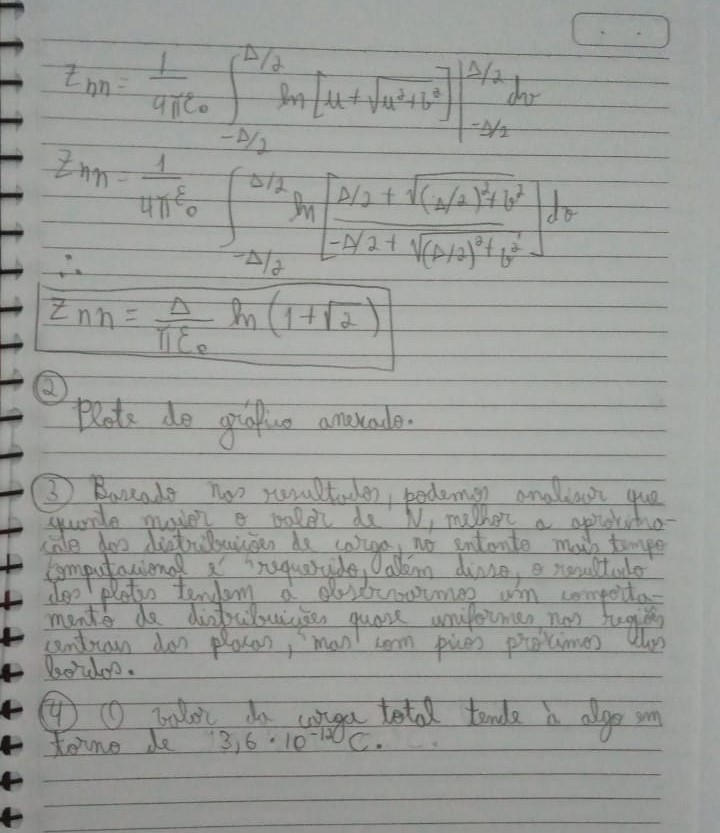 Znn = 1/4πε₀ ∫_{-Δ/2}^{Δ/2} ln[u+√u²+v²] |_{-Δ/2}^{Δ/2} dv
Znn = 1/4πε₀ ∫_{-Δ/2}^{Δ/2} ln[Δ/2 + √(Δ/2)²+v² / -Δ/2 + √(Δ/2)²+v²] dv
∴
Znn = Δ/πε₀ ln(1+√2)
②
Plote do gráfico anexado.
③ Baseado nos resultados, podemos analisar que
quanto maior o valor de N, melhor a aproxima-
ção das distribuições de carga, no entanto mais tempo
computacional é requerido, além disso, o resultado
dos plotes tendem a observarmos um comporta-
mento de distribuições quase uniformes nas regiões
centrais das placas, mas com picos próximos aos
bordos.
④ O valor da carga total tende à algo em
torno de 13,6 · 10⁻¹² C.